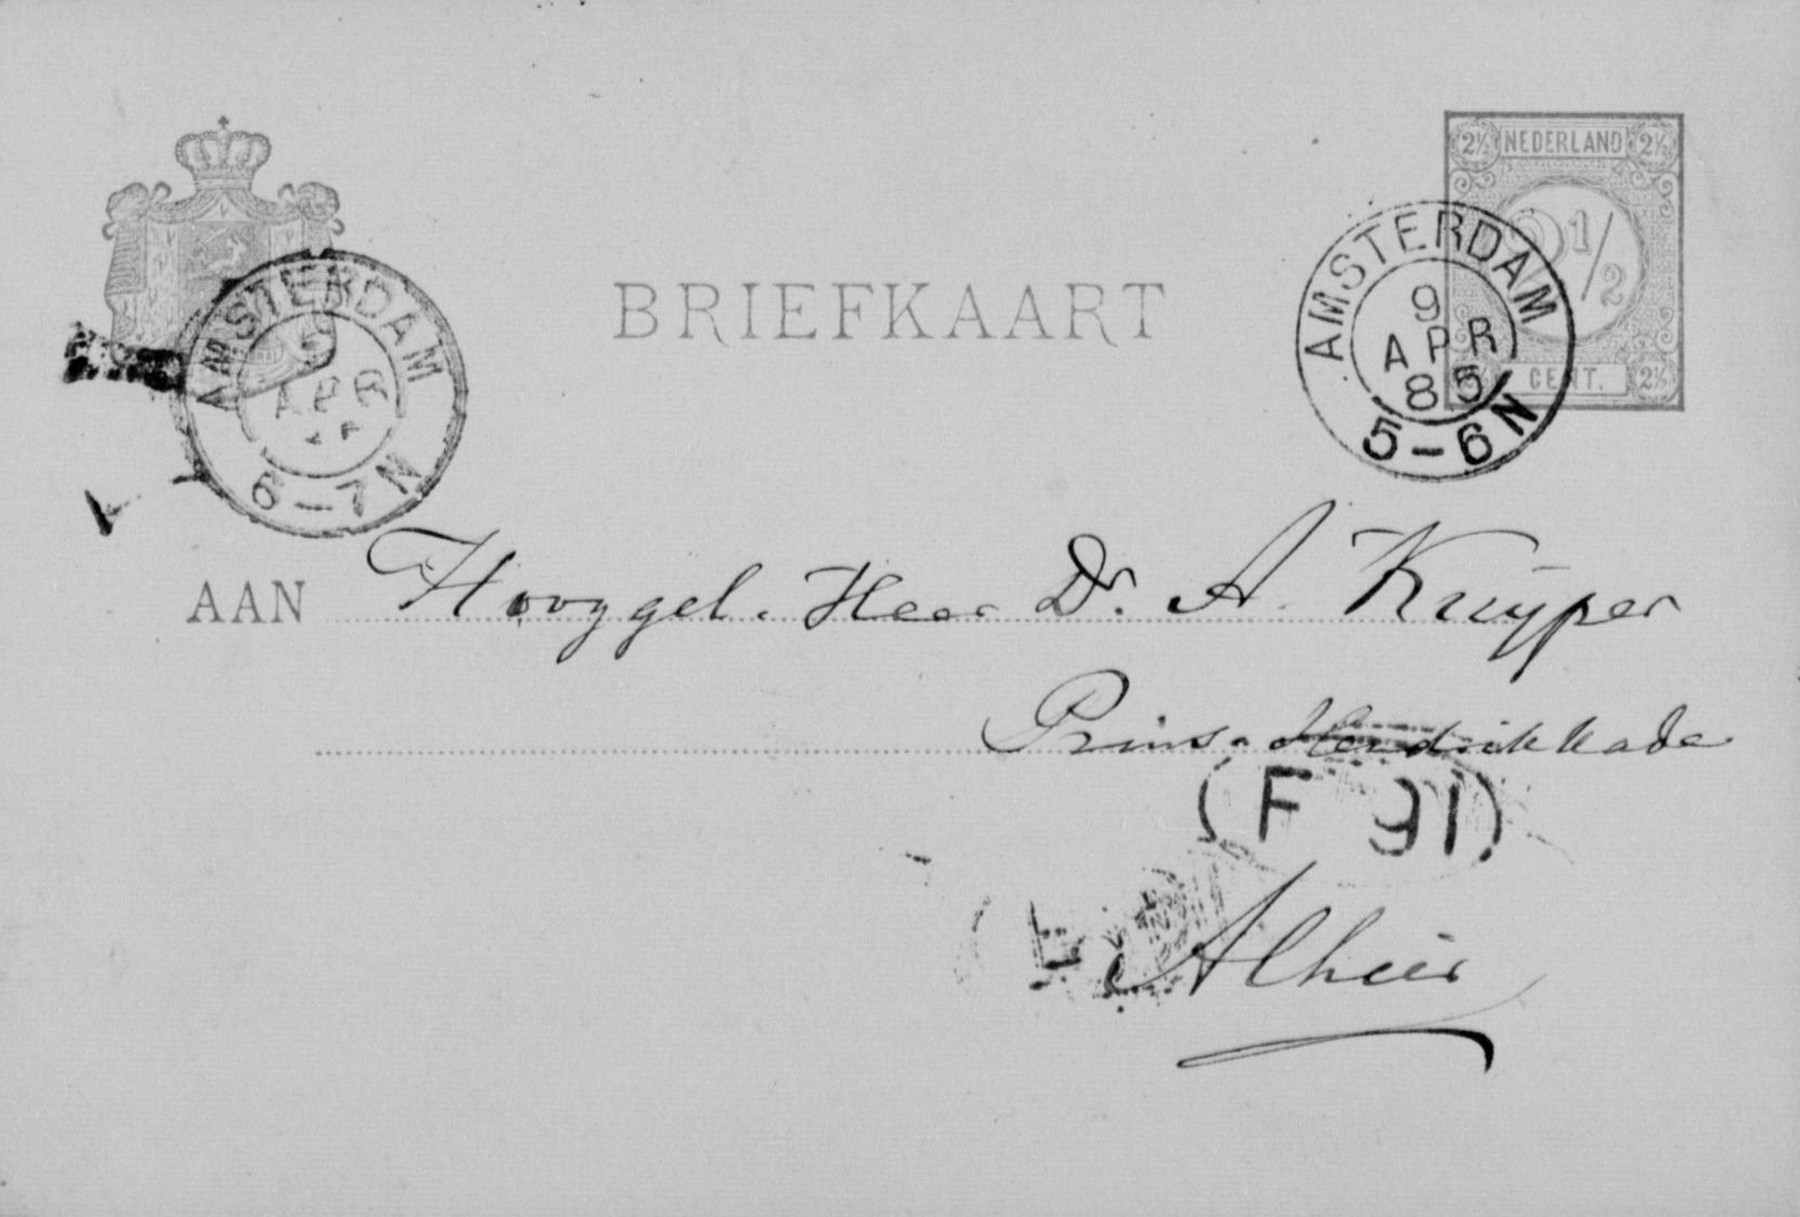 2½ NEDERLAND 2½
2 1/2
CENT. 2½
AMSTERDAM
9
APR
85
5-6N
AMSTERDAM
9
APR
6-7N
BRIEFKAART
AAN Hooggel. Heer Dr. A. Kuyper
Prins Hendrikkade
F 91
Alhier